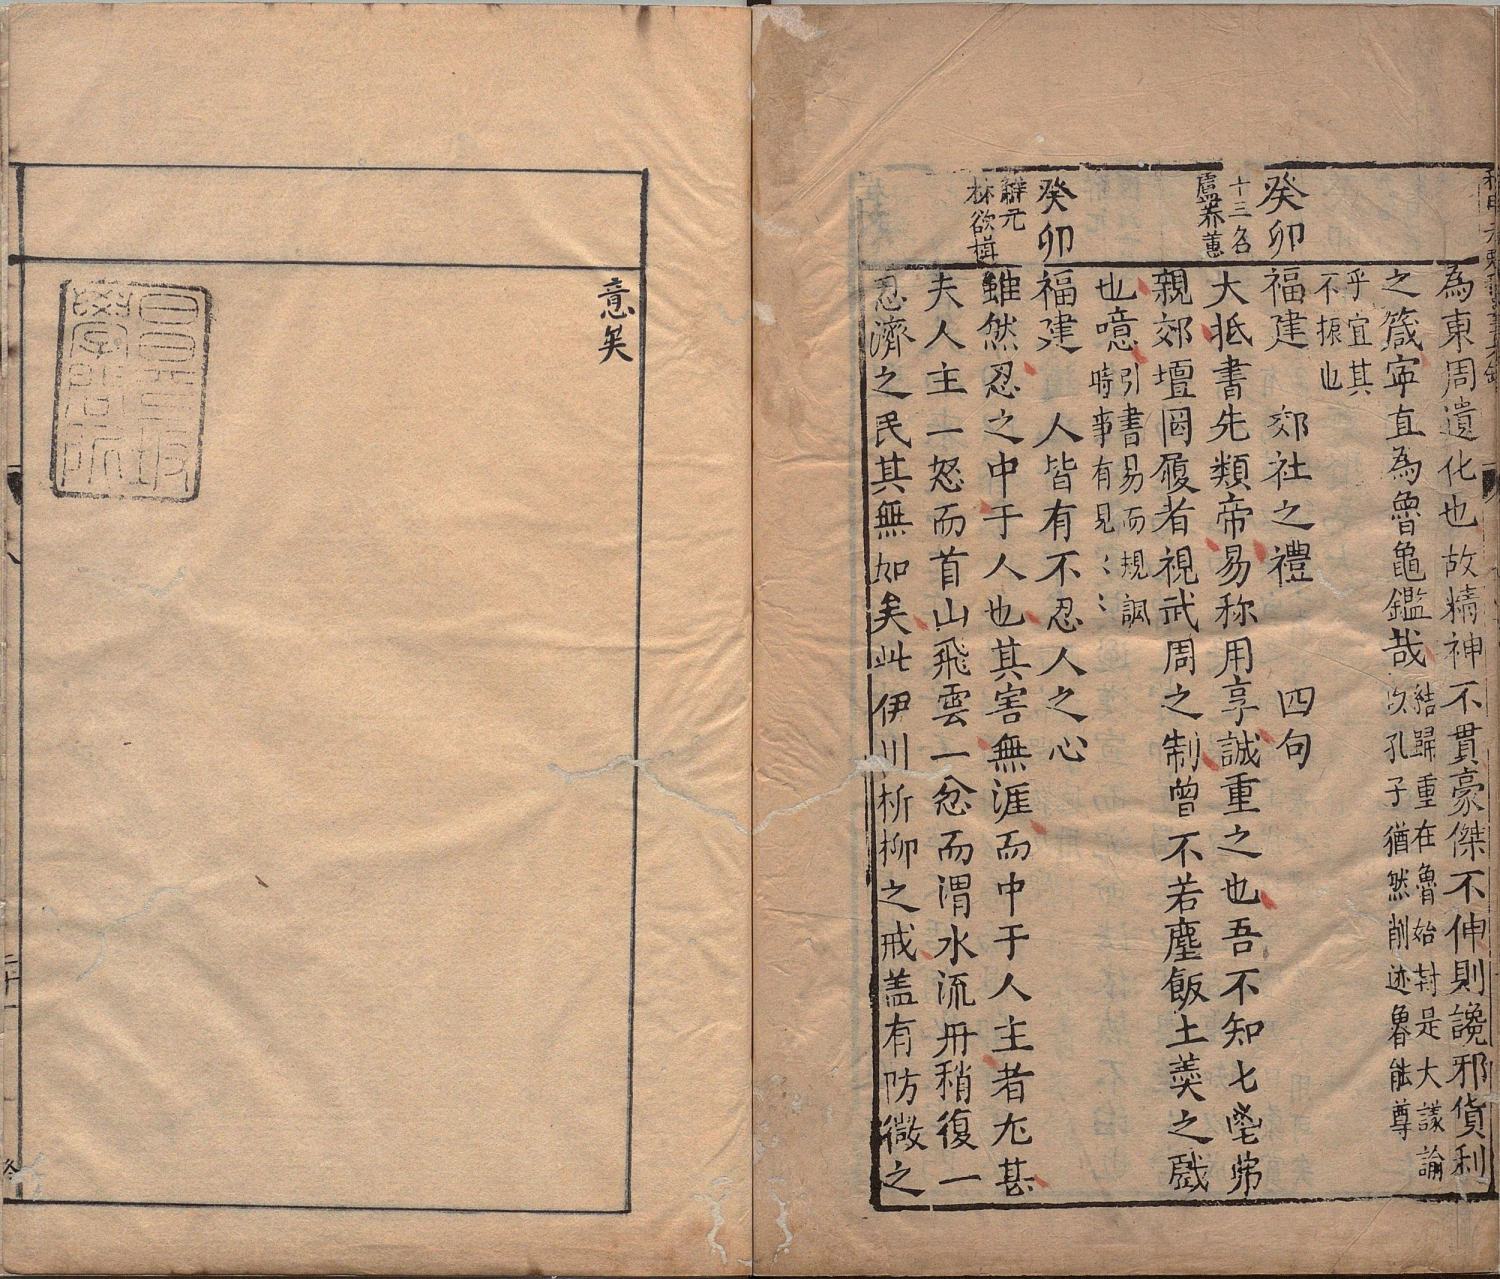 為東周遺化也故精神不貫豪傑不伸則讒邪貨利
之箴寕直為魯龜鑑哉
結歸重在魯始封是大議論
以孔子猶然削迹魯能尊
乎宜其
不振也
癸卯
十三名
盧荞蕙
福建　郊社之禮　四句
大抵書先類帝易称用享誠重之也吾不知七鬯弗
親郊壇罔履者視武周之制曾不若塵飯土羮之戲
也噫
引書易而規諷
時事有見
癸卯
觧元
林欲楫
福建　人皆有不忍人之心
雖然忍之中于人也其害無涯而中于人主者尤甚
夫人主一怒而首山飛雲一忿而渭水流丹稍復一
忍濟之民其無如矣此伊川折柳之戒盖有防微之
意矣
二十一